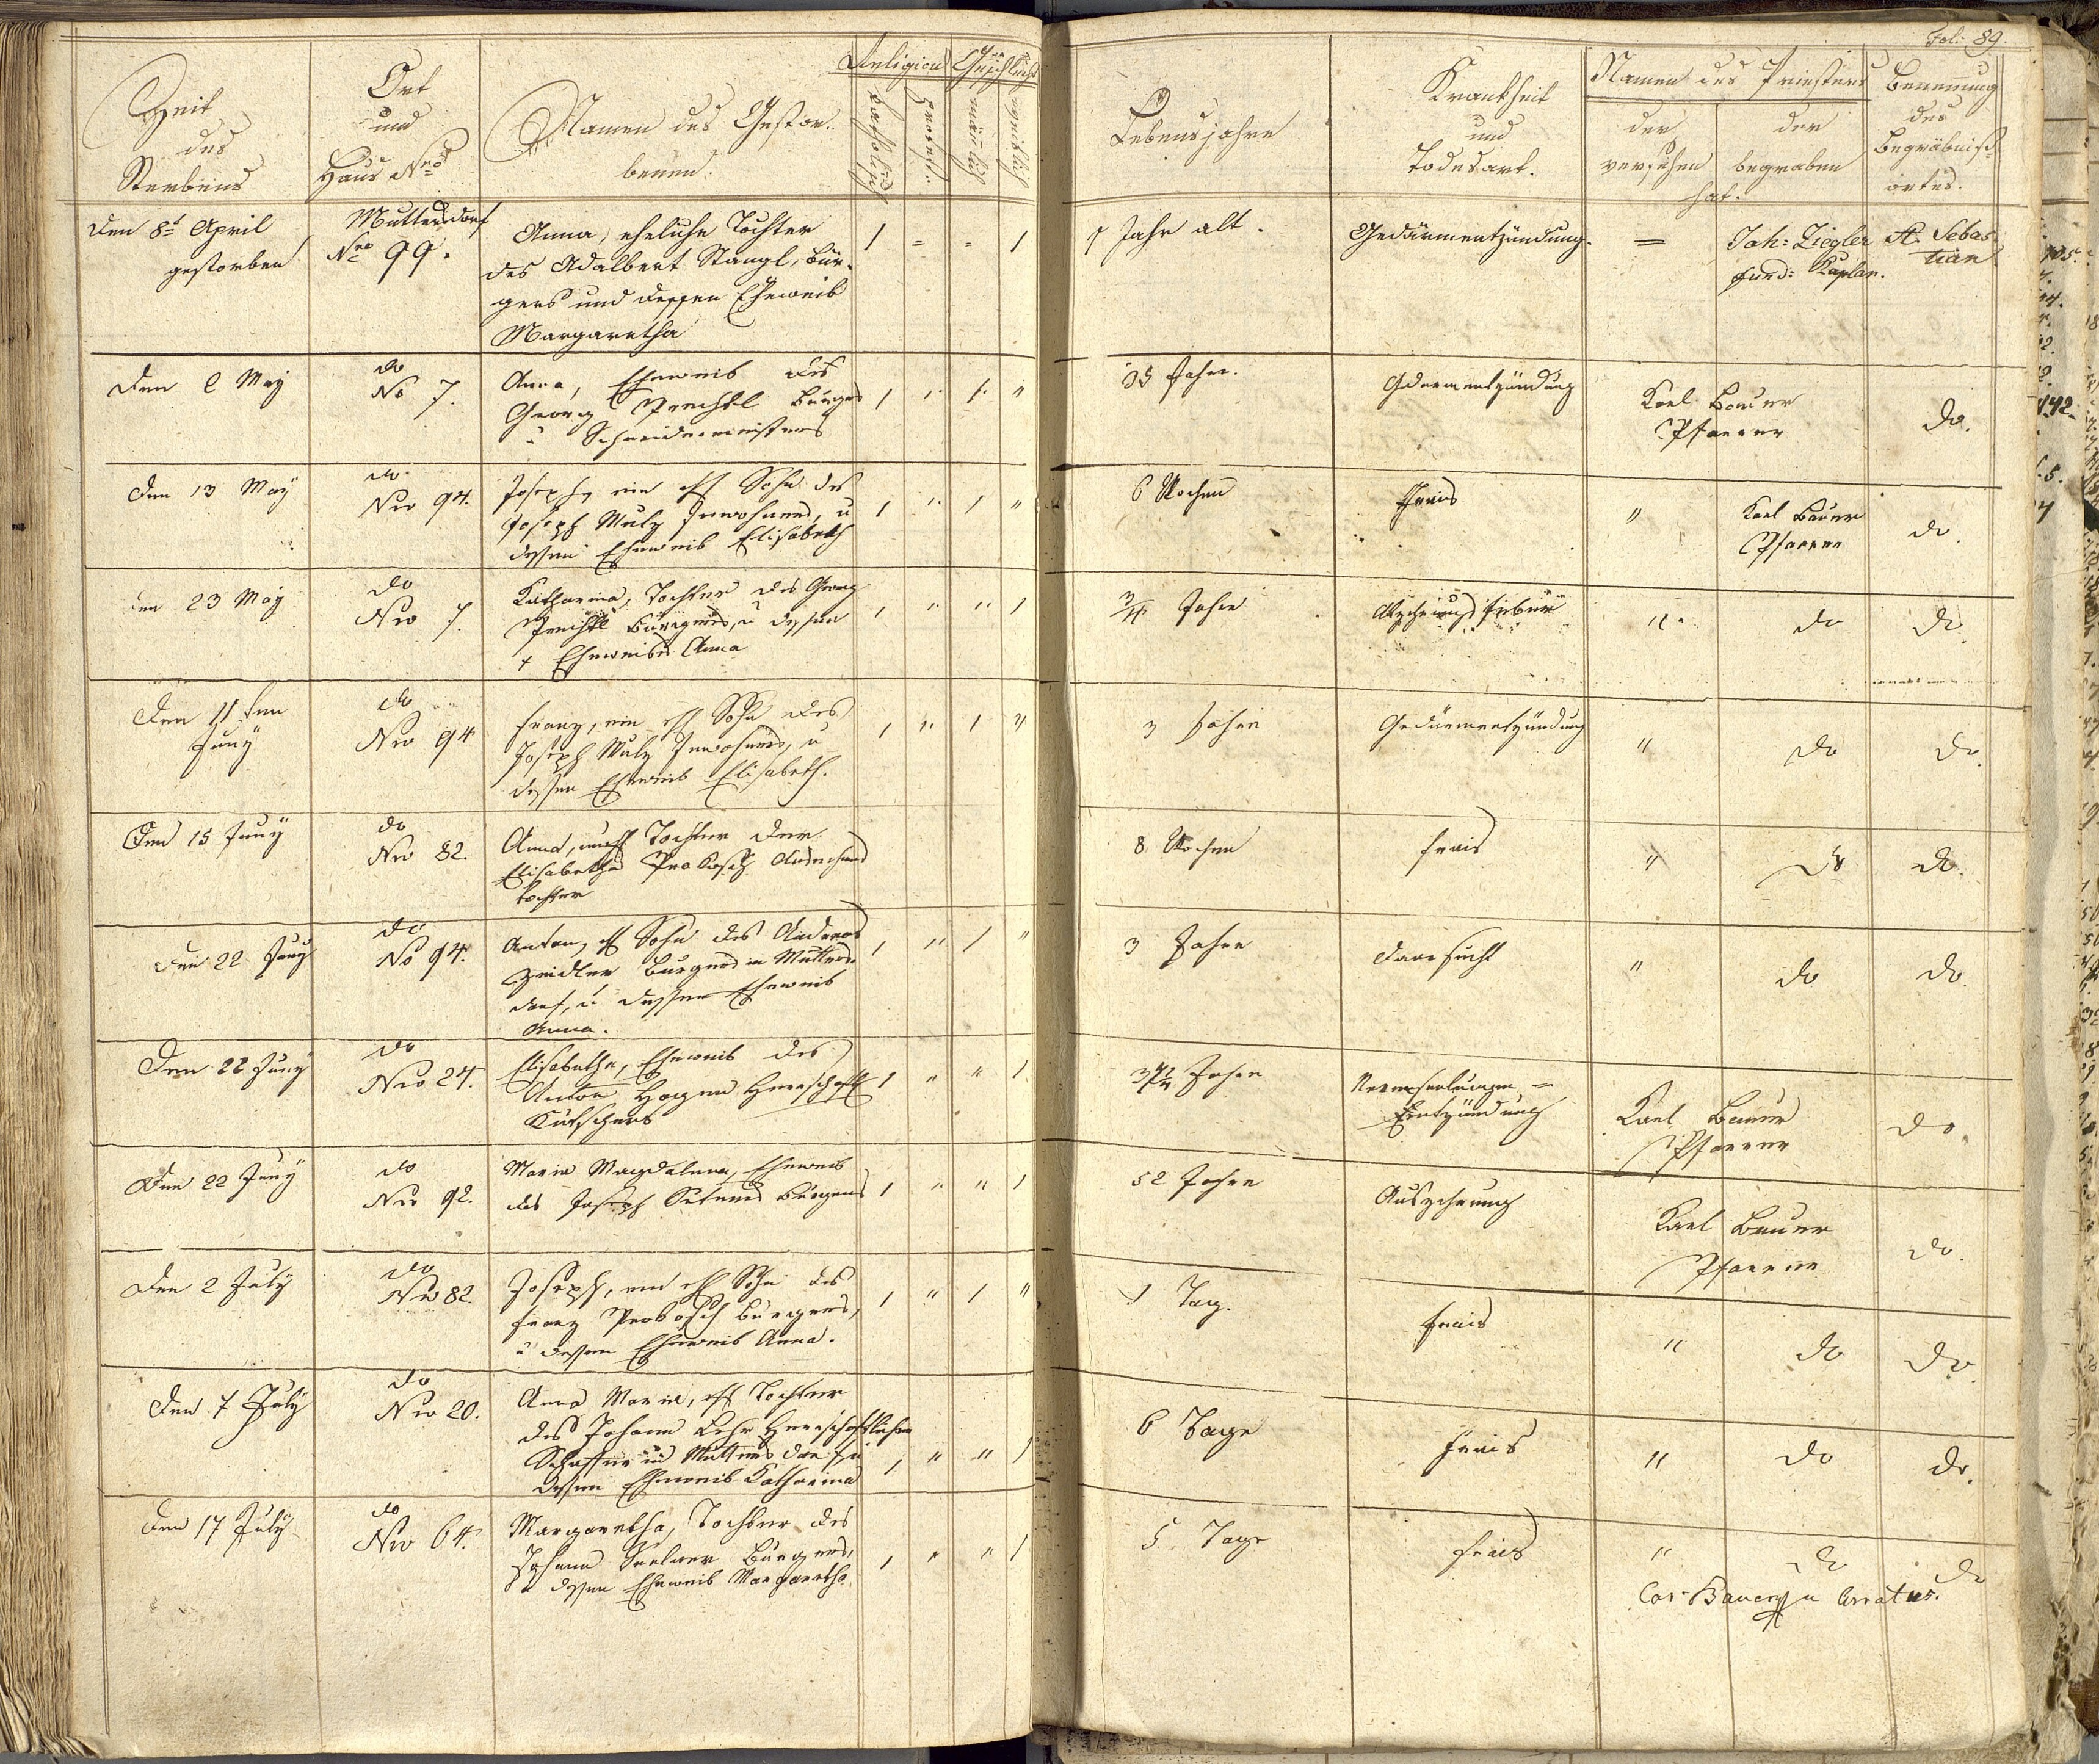 Fol: 89.
Zeit
des
Sterbens
Ort
und
Haus Nro
Namen des Gestor-
benen.
Religion
katholisch
protest:
Geschlecht
mänlich
weiblich
Lebensjahre
Krankheit
und
Todesart.
Namen des Priesters
der
versehen
der
begraben
hat.
Benennung
des
Begräbniß-
ortes.
Den 8t April
gestorben
Muttersdorf
Nro 99.
Anna, eheliche Tochter
des Adalbert Stangl, Bür-
gers und dessen Eheweib
Margaretha
1 = = 1
1 Jahr alt.
Gedärmentzündung.
=
Joh: Ziegler
fund: Kaplan.
St. Sebas-
tian
Den 2 May
do
No 7.
Anna, Eheweib des
Georg Preichtl Bürgers
u Schneidermeisters
1 " 1 "
35 Jahre.
Gdermentzündung
Karl Bauer
Pfarrer
do.
Den 13 May
do
Nro 94.
Joseph, ein ehl Sohn des
Joseph Mulz Inwohners, u
dessen Eheweib Elisabeth
1 " 1 "
6 Wochen
Frais
"
Karl Bauer
Pfarrer
do.
Den 23 May
do
Nro 7.
Katharina, Tochter des Georg
Preichtl Bürgers, u dessen
+ Eheweibs Anna
1 " " 1
3/4 Jahre
"
do
do.
Den 11 ten
Juny
do
Nro 94
Franz, ein ehl Sohn des
Joseph Mulz Inwohners, u
dessen Eheweib Elisabeth.
1 " 1 "
3 Jahre
Gedärmentzündung
"
do
do.
Den 15 Juny
do
Nro 82.
Anna, unehl Tochter der
Elisabetha
tochter
8 Wochen
Frais
"
do
do.
Den 22 Juny
do
No 94.
Anton, ehl Sohn des Andreas
Zeidler Bürgers in Mutters-
dorf, u dessen Eheweib
Anna.
1 " 1 "
3 Jahre
Darrsucht
"
do
do.
Den 22 Juny
do
Nro 24.
Elisabetha, Eheweib des
Anton Hagen Herrschaftl
Kutschers
1 " " 1
Entzündung
Karl Bauer
Pfarrer
do.
Den 22 Juny
do
Nro 92.
Maria Magdalena, Eheweib
des Joseph Bürgers
1 " " 1
52 Jahre
Auszehrung
Karl Bauer
Pfarrer
do.
Den 2 July
do
Nro 82.
Joseph, ein ehl Sohn des
Franz Bürgers,
u dessen Eheweib Anna.
1 " 1 "
1 Tag.
Frais
"
do
do.
Den 7 July
do
Nro 20.
Anna Maria, ehl Tochter
des Johann Herrschaftlichen
Schaffer in Muttersdorf, u
dessen Eheweib Katharina
1 " " 1
6 Tage
Frais
"
do
do.
Den 17 July
do
Nro 64.
Margaretha, Tochter des
Johann Bürgers,
u dessen Eheweib Margaretha.
1 " " 1
5 Tage
Frais
"
do
do
Car Bauer